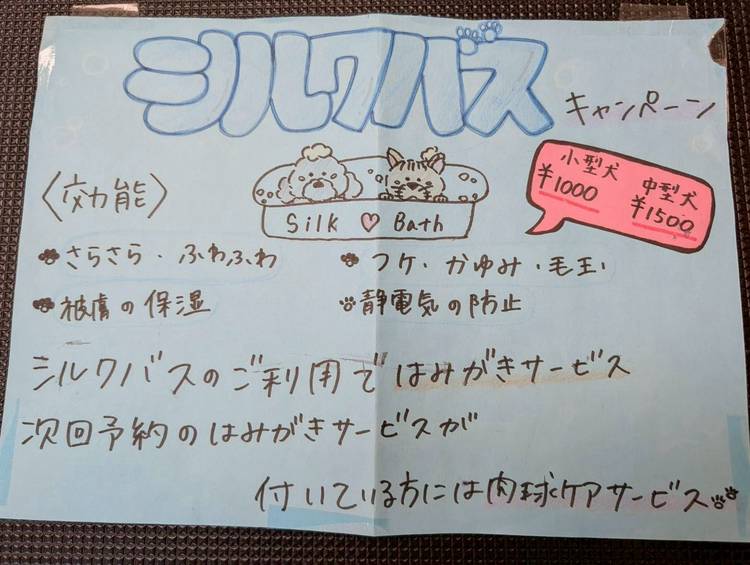 シルクバス
キャンペーン
小型犬
¥1000
中型犬
¥1500
〈効能〉
Silk ♡ Bath
さらさら・ふわふわ
フケ・かゆみ・毛玉
被膚の保湿
静電気の防止
シルクバスのご利用で はみがきサービス
次回予約のはみがきサービスが
付いている方には肉球ケアサービス